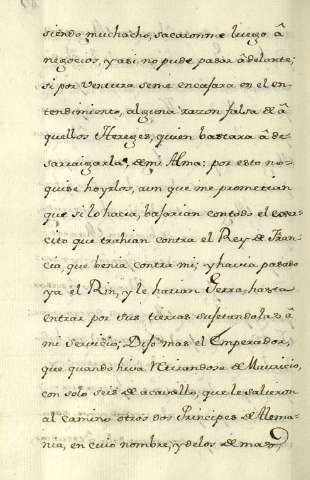 siendo muchacho, sacaronme luego â
negocios, y asi no pude pasar âdelante;
si por ventura seme encasara en el en-
tendimiento, alguna razon falsa de â
quellos Hereges, quien bastara â de-
sarraigarla, de mi Alma: por esto no-
quise hoyrlos, aun que me prometian
que si lo hacia, bajarian contodo el exer-
cito que trahian contra el Rey de Fran-
cia, que benia contra mi, y havia pasado
ya el Rin, y le harian Gerra, hasta
entrar por sus tierras sujetandolas â
mi servicio; Dijo mas el Emperador,
que quando hiva retirandose de Mauricio,
con solo seis de acavallo, que le salieron
al camino otros dos Principes de Alema-
nia, en cuio nombre, y delos demas